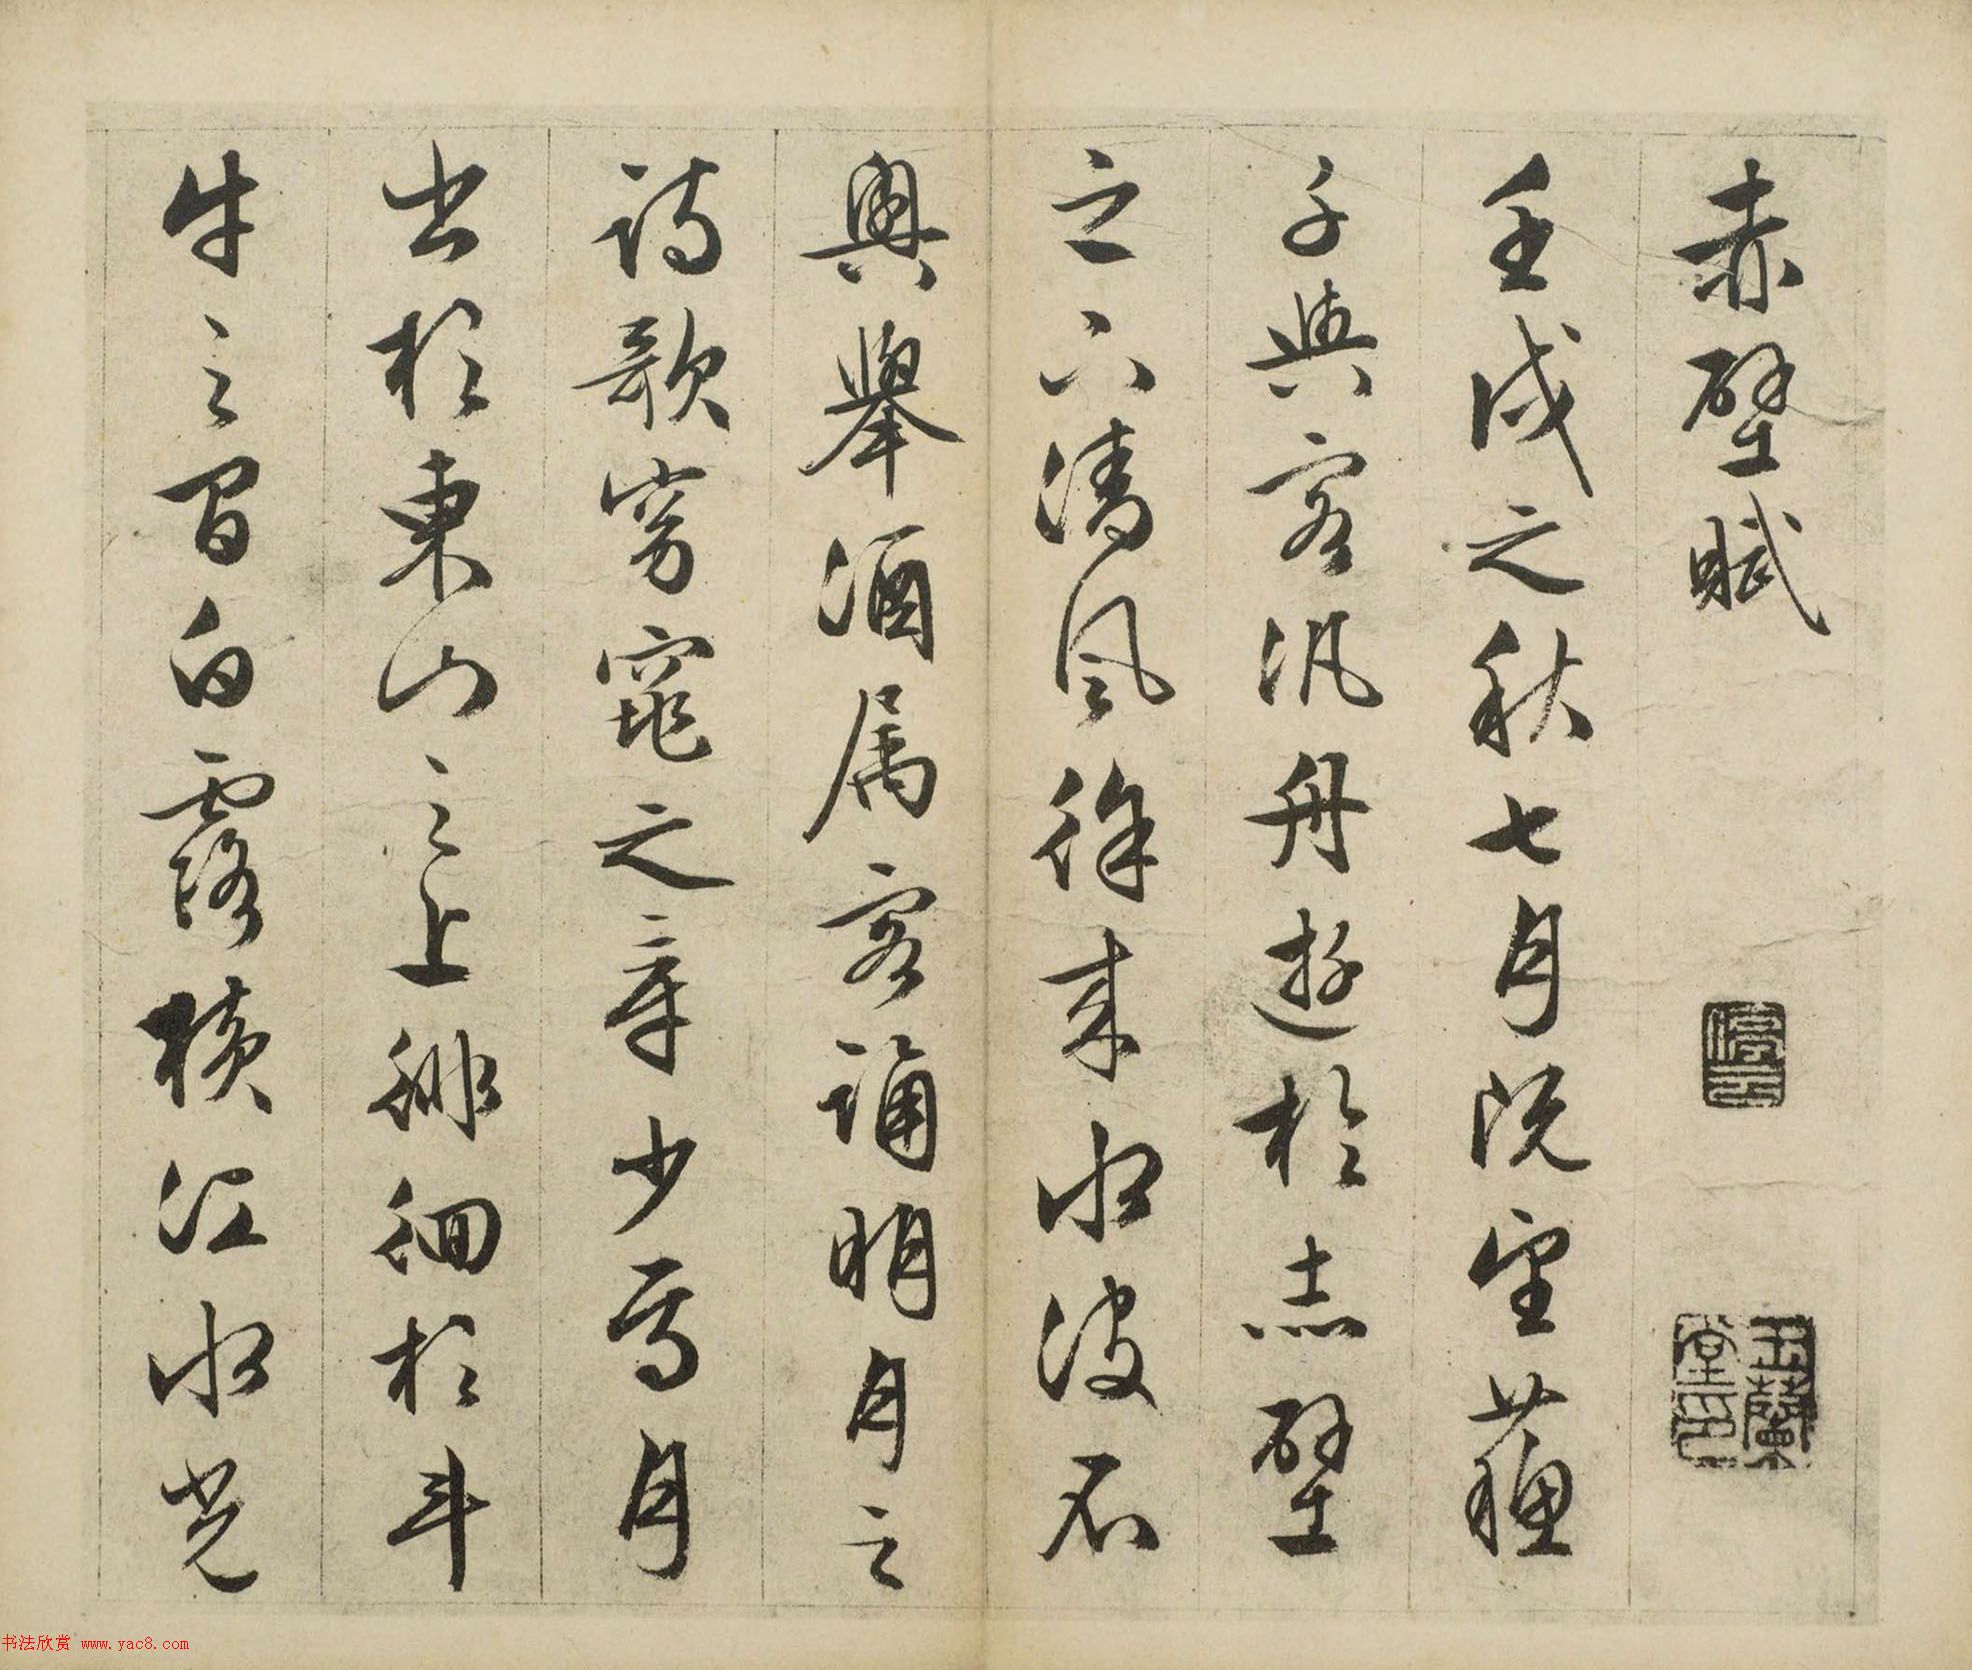 赤壁賦
壬戌之秋七月既望蘇
子與客汎舟遊於赤壁
之下清風徐來水波不
興舉酒属客誦明月之
詩歌窈窕之章少焉月
出於東山之上徘徊於斗
牛之間白露橫江水光
玉蘭堂印
书法欣赏 www.yac8.com